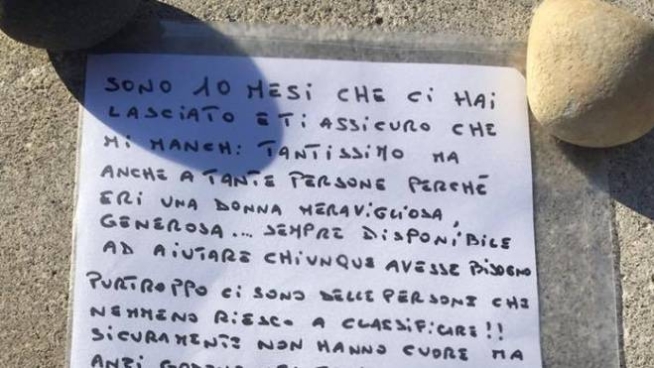 SONO 10 MESI CHE CI HAI
LASCIATO E TI ASSICURO CHE
MI MANCHI TANTISSIMO MA
ANCHE A TANTE PERSONE PERCHÉ
ERI UNA DONNA MERAVIGLIOSA,
GENEROSA... SEMPRE DISPONIBILE
AD AIUTARE CHIUNQUE AVESSE BISOGNO
PURTROPPO CI SONO DELLE PERSONE CHE
NEMMENO RIESCO A CLASSIFICARE!!
SICURAMENTE NON HANNO CUORE MA
ANZI